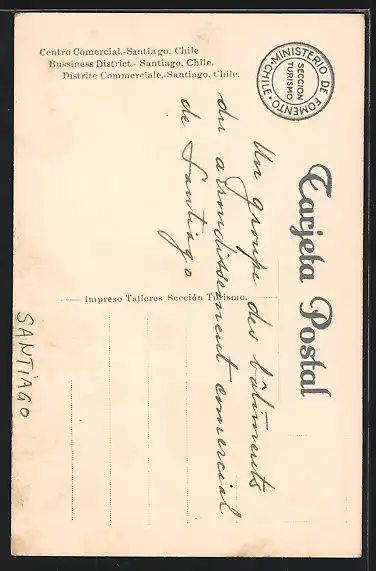 Centro Comercial.-Santiago. Chile
Bussiness District.- Santiago. Chile.
Distrite Commerciale.-Santiago. Chile.
MINISTERIO DE FOMENTO
CHILE
SECCION
TURISMO
Tarjeta Postal
Un groupe des bâtiments
du arrondissement comercial
de Santiago
Impreso Talleres Sección Turismo.
SANTIAGO